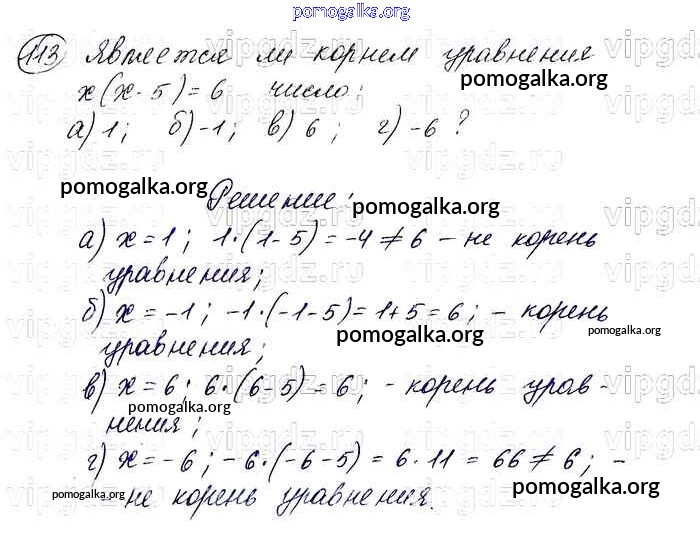 pomogalka.org
113 Является ли корнем уравнения
x(x-5)=6 число:
pomogalka.org
а) 1; б) -1; в) 6; г) -6?
vipgdz.ru
pomogalka.org
Решение:
pomogalka.org
а) x=1; 1·(1-5)=-4≠6 – не корень
уравнения;
б) x=-1; -1·(-1-5)=1+5=6; – корень
pomogalka.org
pomogalka.org
уравнения;
в) x=6; 6·(6-5)=6; - корень урав-
pomogalka.org
нения;
г) x=-6; -6·(-6-5)=6·11=66≠6; –
pomogalka.org
pomogalka.org
не корень уравнения.